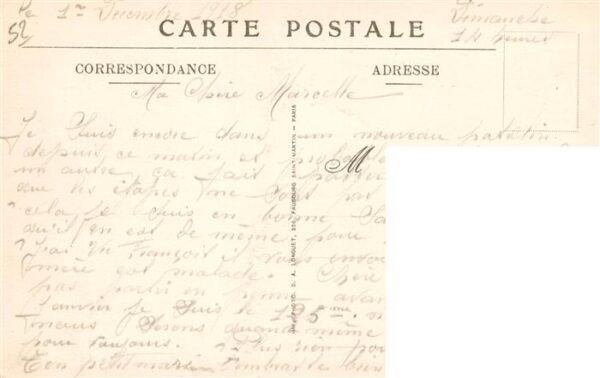 Le 1er Decembre 1918 Dimanche
52 14 heures
CARTE POSTALE
CORRESPONDANCE
ADRESSE
Ma Chère Marcelle
Je suis encore dans un nouveau patelin
depuis ce matin et
un autre, ça fait passer
M
que les étapes ne sont pas
cela je suis en bonne
qu'il en est de même pour
J'ai vu François il vous envoi
mère est malade. Chère
pas partir en perme avan
Janvier je suis le 125me.
nous serons quand même
pour toujours. Plus rien pour
Ton petit mari
IMP. PHOTO. D. A. LONGUET, 250, FAUBOURG SAINT-MARTIN — PARIS